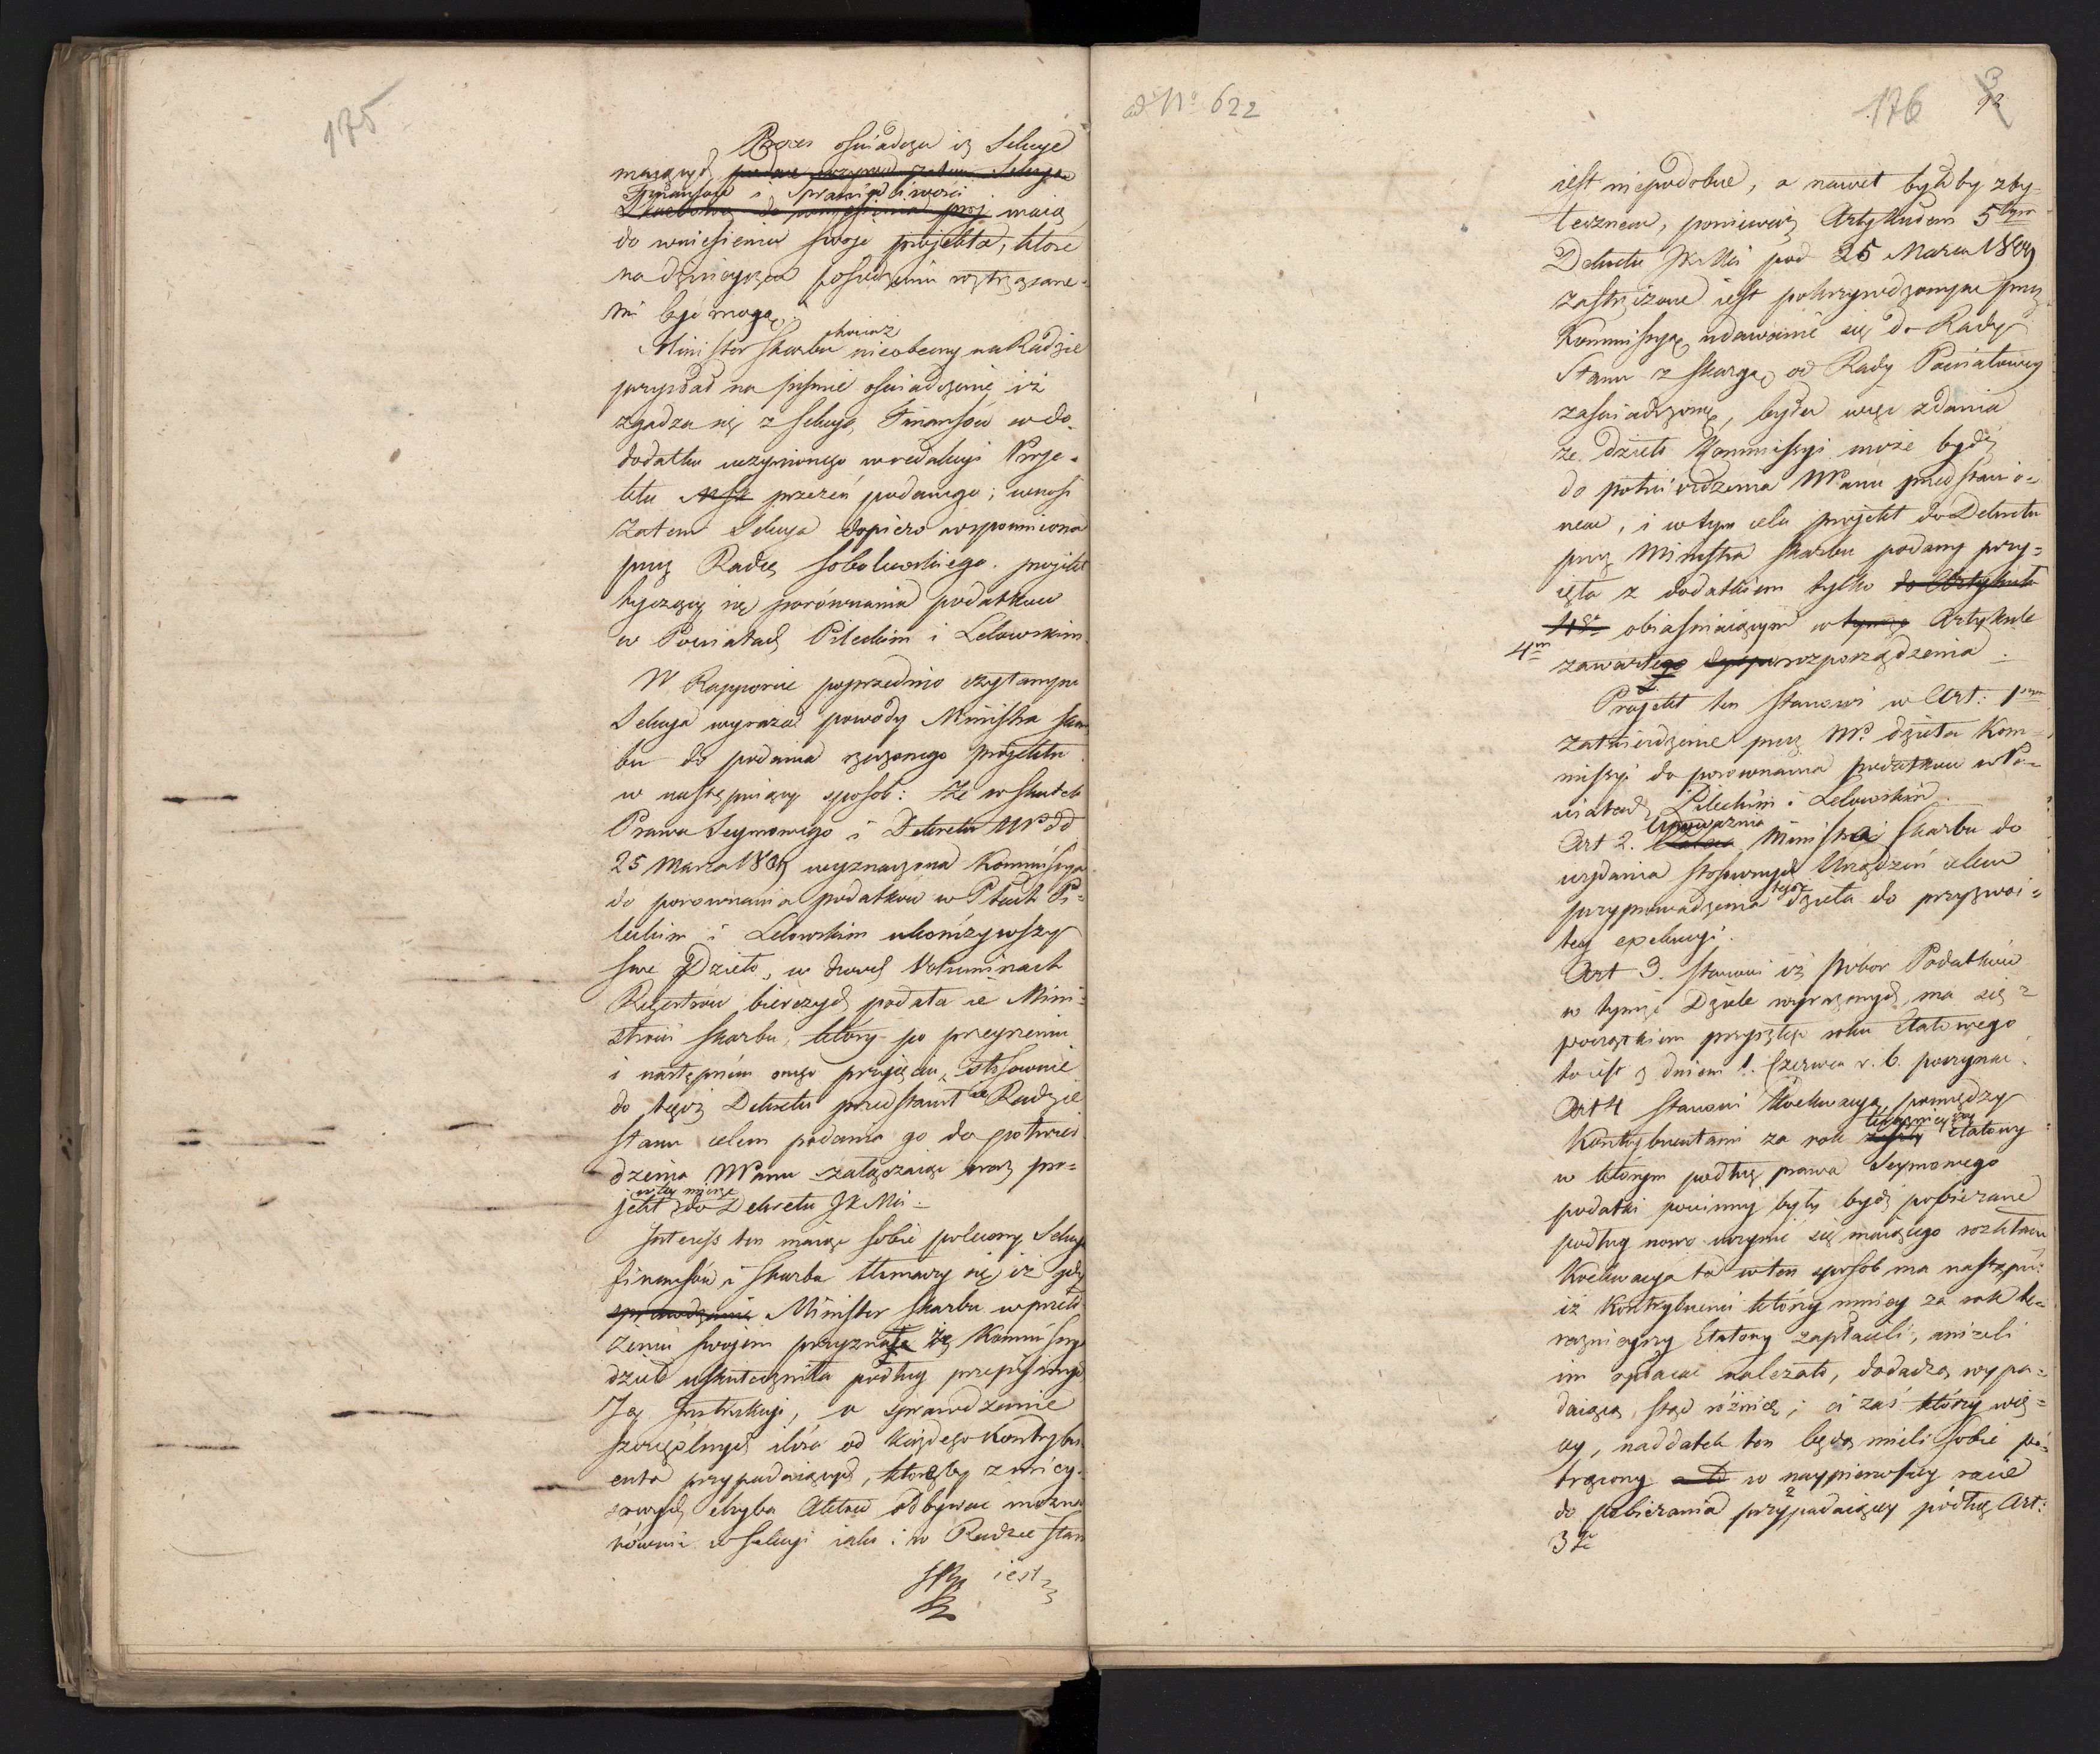 175
Prezes oświadcza iż Sekcye
Finansów i Sprawiedliwości maią
do wniesienia swoje projekta, które
na dzisieyszem posiedzeniu roztrząsane-
mi być mogą.
Minister Skarbu chociaż nieobecny na Radzie
przysłał na piśmie oświadczenie iż
zgadza się z Sekcyą Finansów w do-
dodatku uczynionego w redakcyi Proje-
ktu przezeń podanego; wnosi
zatem Sekcya dopiero wspomniona
przez Radcę Sobolewskiego projekt
tyczący się porównania podatków
w Powiatach Pileckim i Lelowskim
W Rapporcie poprzednio czytanym
Sekcya wyraża powody Ministra Skar
bu do podania rzeczonego projektu
w następuiący sposób: Że w skutek
Prawa Seymowego i Dekretu NPa dd
25 Marca 1809 wyznaczona Kommissya
do porównania podatków w Ptach Pi-
leckim i Lelowskim ukończywszy
swe Dzieło, w dwóch Voluminach
Rejestrów bierczych podała ie Mini-
strowi Skarbu, który po przeyrzeniu
i następném onego przyjęciu, stosownie
do tegoż Dekretu przedstawił ie Radzie
Stanu celem podania go do potwier
dzenia NPanu załączaiąc oraz pro-
jekt w tey mierze do Dekretu JKMci
Interess ten maiąc sobie polecony Sekcya
finansów i Skarbu tłomaczy się iż gdy
Minister Skarbu w przeło
żeniu swojem przyznaje że Kommissya
dzieło uskuteczniła podług przepisaney
Jey Instrukcyi, a sprawdzenie
szczególnych ilości od każdego Kontrybu
enta przypadaiących, któreby z miey-
scowych chyba Aktów odbywać można
równie w Sekcyi iako i w Radzie Stanu
iest
ad No 622
176
3
92
iest niepodobne, a nawet byłoby zby-
tecznem, ponieważ Artykułem 5tym
Dekretu JKMci pod 25 Marca 1809
zastrzeżone iest pokrzywdzonym przez
Kommissyą udawanie się do Rady
Stanu z skargą od Rady Powiatowey
zaświadczoną, była więc zdania
że Dzieło Kommissyi może bydź
do potwierdzenia NPanu przedstawio-
nem, i w tym celu projekt do Dekretu
przez Ministra Skarbu podany przy-
ięła z dodatkiem tylko do Artykułu
4go obiaśniaiącym w tymże Artykule
4m zawartego rozporządzenia.
Projekt ten stanowi w Art: 1wszym
zatwierdzenie przez NPa dzieła Kom-
missyi do porównania podatków w Po-
wiatach Pileckim i Lelowskim.
Art 2. Upoważnia Ministra Skarbu do
wydania stosownych Urządzeń celem
przyprowadzenia tegoż dzieła do przyzwoi-
tey exekucyi.
Art 3. stanowi iż pobór Podatków
w tymże Dziele wyrażonych, ma się z
początkiem przyszłego roku Etatowego
to iest z dniem 1. Czerwca r. b. poczynać.
Art 4 stanowi Koekwacyą pomiędzy
Kontrybuentami za rok teraźnieyszy Etatowy
w którym podług prawa Seymowego
podatki powinny były bydź pobierane
podług nowo czynić się maiącego rozkładu
Koekwacya ta w ten sposób ma nastąpić
iż Kontrybuenci którzy mniey za rok te-
raźnieyszy Etatowy zapłacili, aniżeli
im opłacać należało, dodadzą wypa-
daiącą stąd różnicę; ci zaś którzy wię-
cey, naddatek ten będą mieli sobie po-
trącony w naypierwszey racie
do pobierania przypadaiącey podług Art:
3go